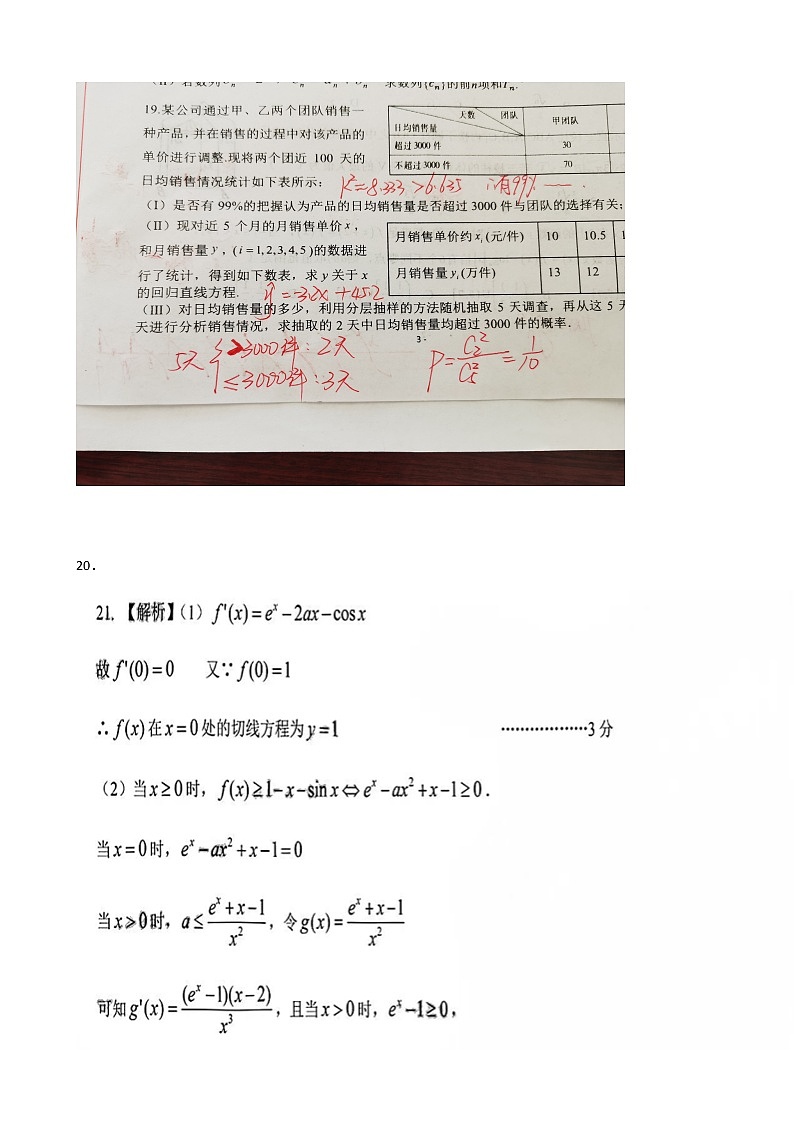 19.某公司通过甲、乙两个团队销售一
种产品,并在销售的过程中对该产品的
单价进行调整.现将两个团近 100 天的
日均销售情况统计如下表所示:
天数 团队 日均销售量 甲团队
超过3000 件 30
不超过3000 件 70
K²=8.333>6.635 ∴有99% …….
(Ⅰ) 是否有 99%的把握认为产品的日均销售量是否超过 3000 件与团队的选择有关;
(Ⅱ) 现对近 5 个月的月销售单价 x,
和月销售量 y,(i=1,2,3,4,5)的数据进
行了统计,得到如下数表,求 y 关于 x
的回归直线方程.
月销售单价约 xᵢ(元/件) 10 10.5
月销售量 yᵢ(万件) 13 12
ŷ=-3.2x+45.2
(Ⅲ) 对日均销售量的多少,利用分层抽样的方法随机抽取 5 天调查,再从这 5 天
天进行分析销售情况,求抽取的 2 天中日均销售量均超过 3000 件的概率.
3 ·
5天 { >3000件:2天
≤3000件:3天
P=C₂²/C₅²=1/10
20.
21.【解析】(1) f'(x)=eˣ-2ax-cosx
故 f'(0)=0 又∵ f(0)=1
∴ f(x) 在 x=0 处的切线方程为 y=1 ··················3 分
(2) 当 x≥0 时, f(x)≥1-x-sinx⇔eˣ-ax²+x-1≥0.
当 x=0 时, eˣ-ax²+x-1=0
当 x>0 时, a≤(eˣ+x-1)/x²,令 g(x)=(eˣ+x-1)/x²
可知 g'(x)=(eˣ-1)(x-2)/x³,且当 x>0 时, eˣ-1≥0,